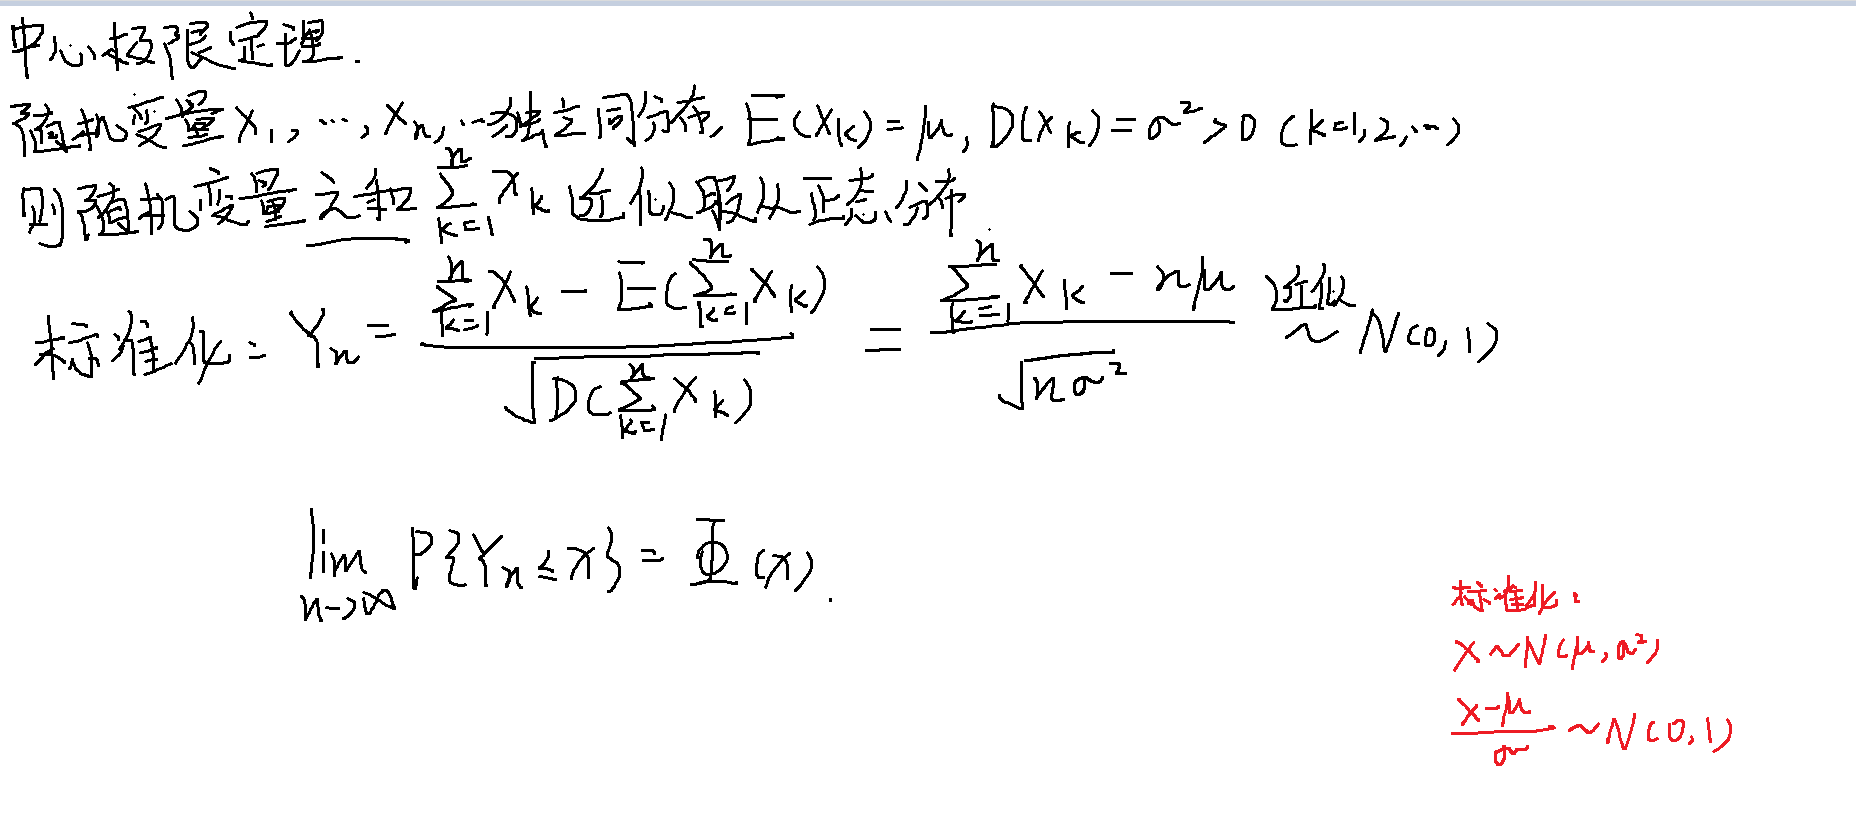 中心极限定理.
随机变量X₁, ⋯, Xₙ, ⋯独立同分布, E(Xₖ) = μ, D(Xₖ) = σ² > 0 (k=1,2,⋯)
则随机变量之和 ∑ₖ₌₁ⁿ Xₖ 近似服从正态分布
标准化: Yₙ = (∑ₖ₌₁ⁿ Xₖ − E(∑ₖ₌₁ⁿ Xₖ)) / √D(∑ₖ₌₁ⁿ Xₖ) = (∑ₖ₌₁ⁿ Xₖ − nμ) / √nσ² 近似 ~ N(0, 1)
lim n→∞ P{Yₙ ≤ x} = Φ(x).
标准化:
X ~ N(μ, σ²)
(X−μ)/σ ~ N(0, 1)